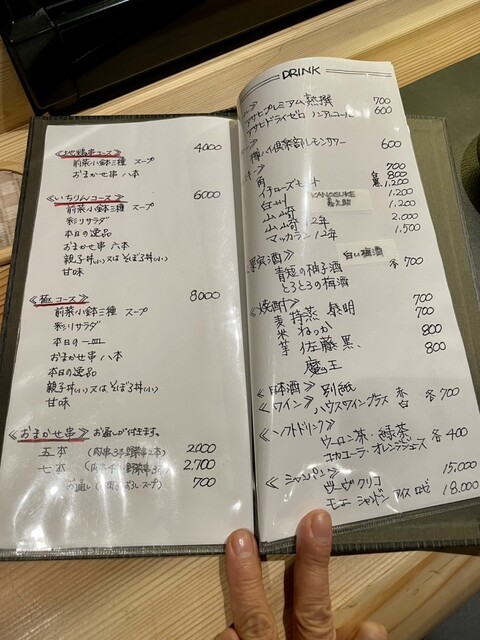 コース≫ 4000
前菜小鉢三種 スープ
おまかせ串 八本
≪いちりんコース≫ 6000
前菜小鉢三種 スープ
彩りサラダ
本日の逸品
おまかせ串 六本
親子丼(小)又はそぼろ丼(小)
甘味
≪極コース≫ 8000
前菜小鉢三種 スープ
彩りサラダ
本日の一皿
おまかせ串 八本
本日の逸品
親子丼(小)又はそぼろ丼(小)
甘味
≪おまかせ串≫ お通しが付きます。
五本 (肉串3本野菜串2本) 2000
七本 2.700
お通し スープ) 700
DRINK
アサヒプレミアム熟撰 700
アサヒドライゼロ ノンアルコール 600
樽ハイ倶楽部レモンサワー 600
角 700
イチローズモルト 800
白州 KANOSUKE 嘉之助 1.200
山崎 1.200
山崎12年 2.000
マッカラン12年 1.500
果実酒≫ 白い梅酒
青短の柚子酒 各700
とろとろの梅酒
≪焼酎≫
麦 特蒸 泰明 700
米 ねっか 700
芋 佐藤 黒 800
魔王 800
≪日本酒≫ 別紙
≪ワイン≫ ハウスワイングラス 赤 白 各700
≪ソフトドリンク≫
ウーロン茶・緑茶 各400
コカコーラ・オレンジジュース
≪シャンパン≫
ヴーヴクリコ 15.000
モエ・シャンドン アイス ロゼ 18.000